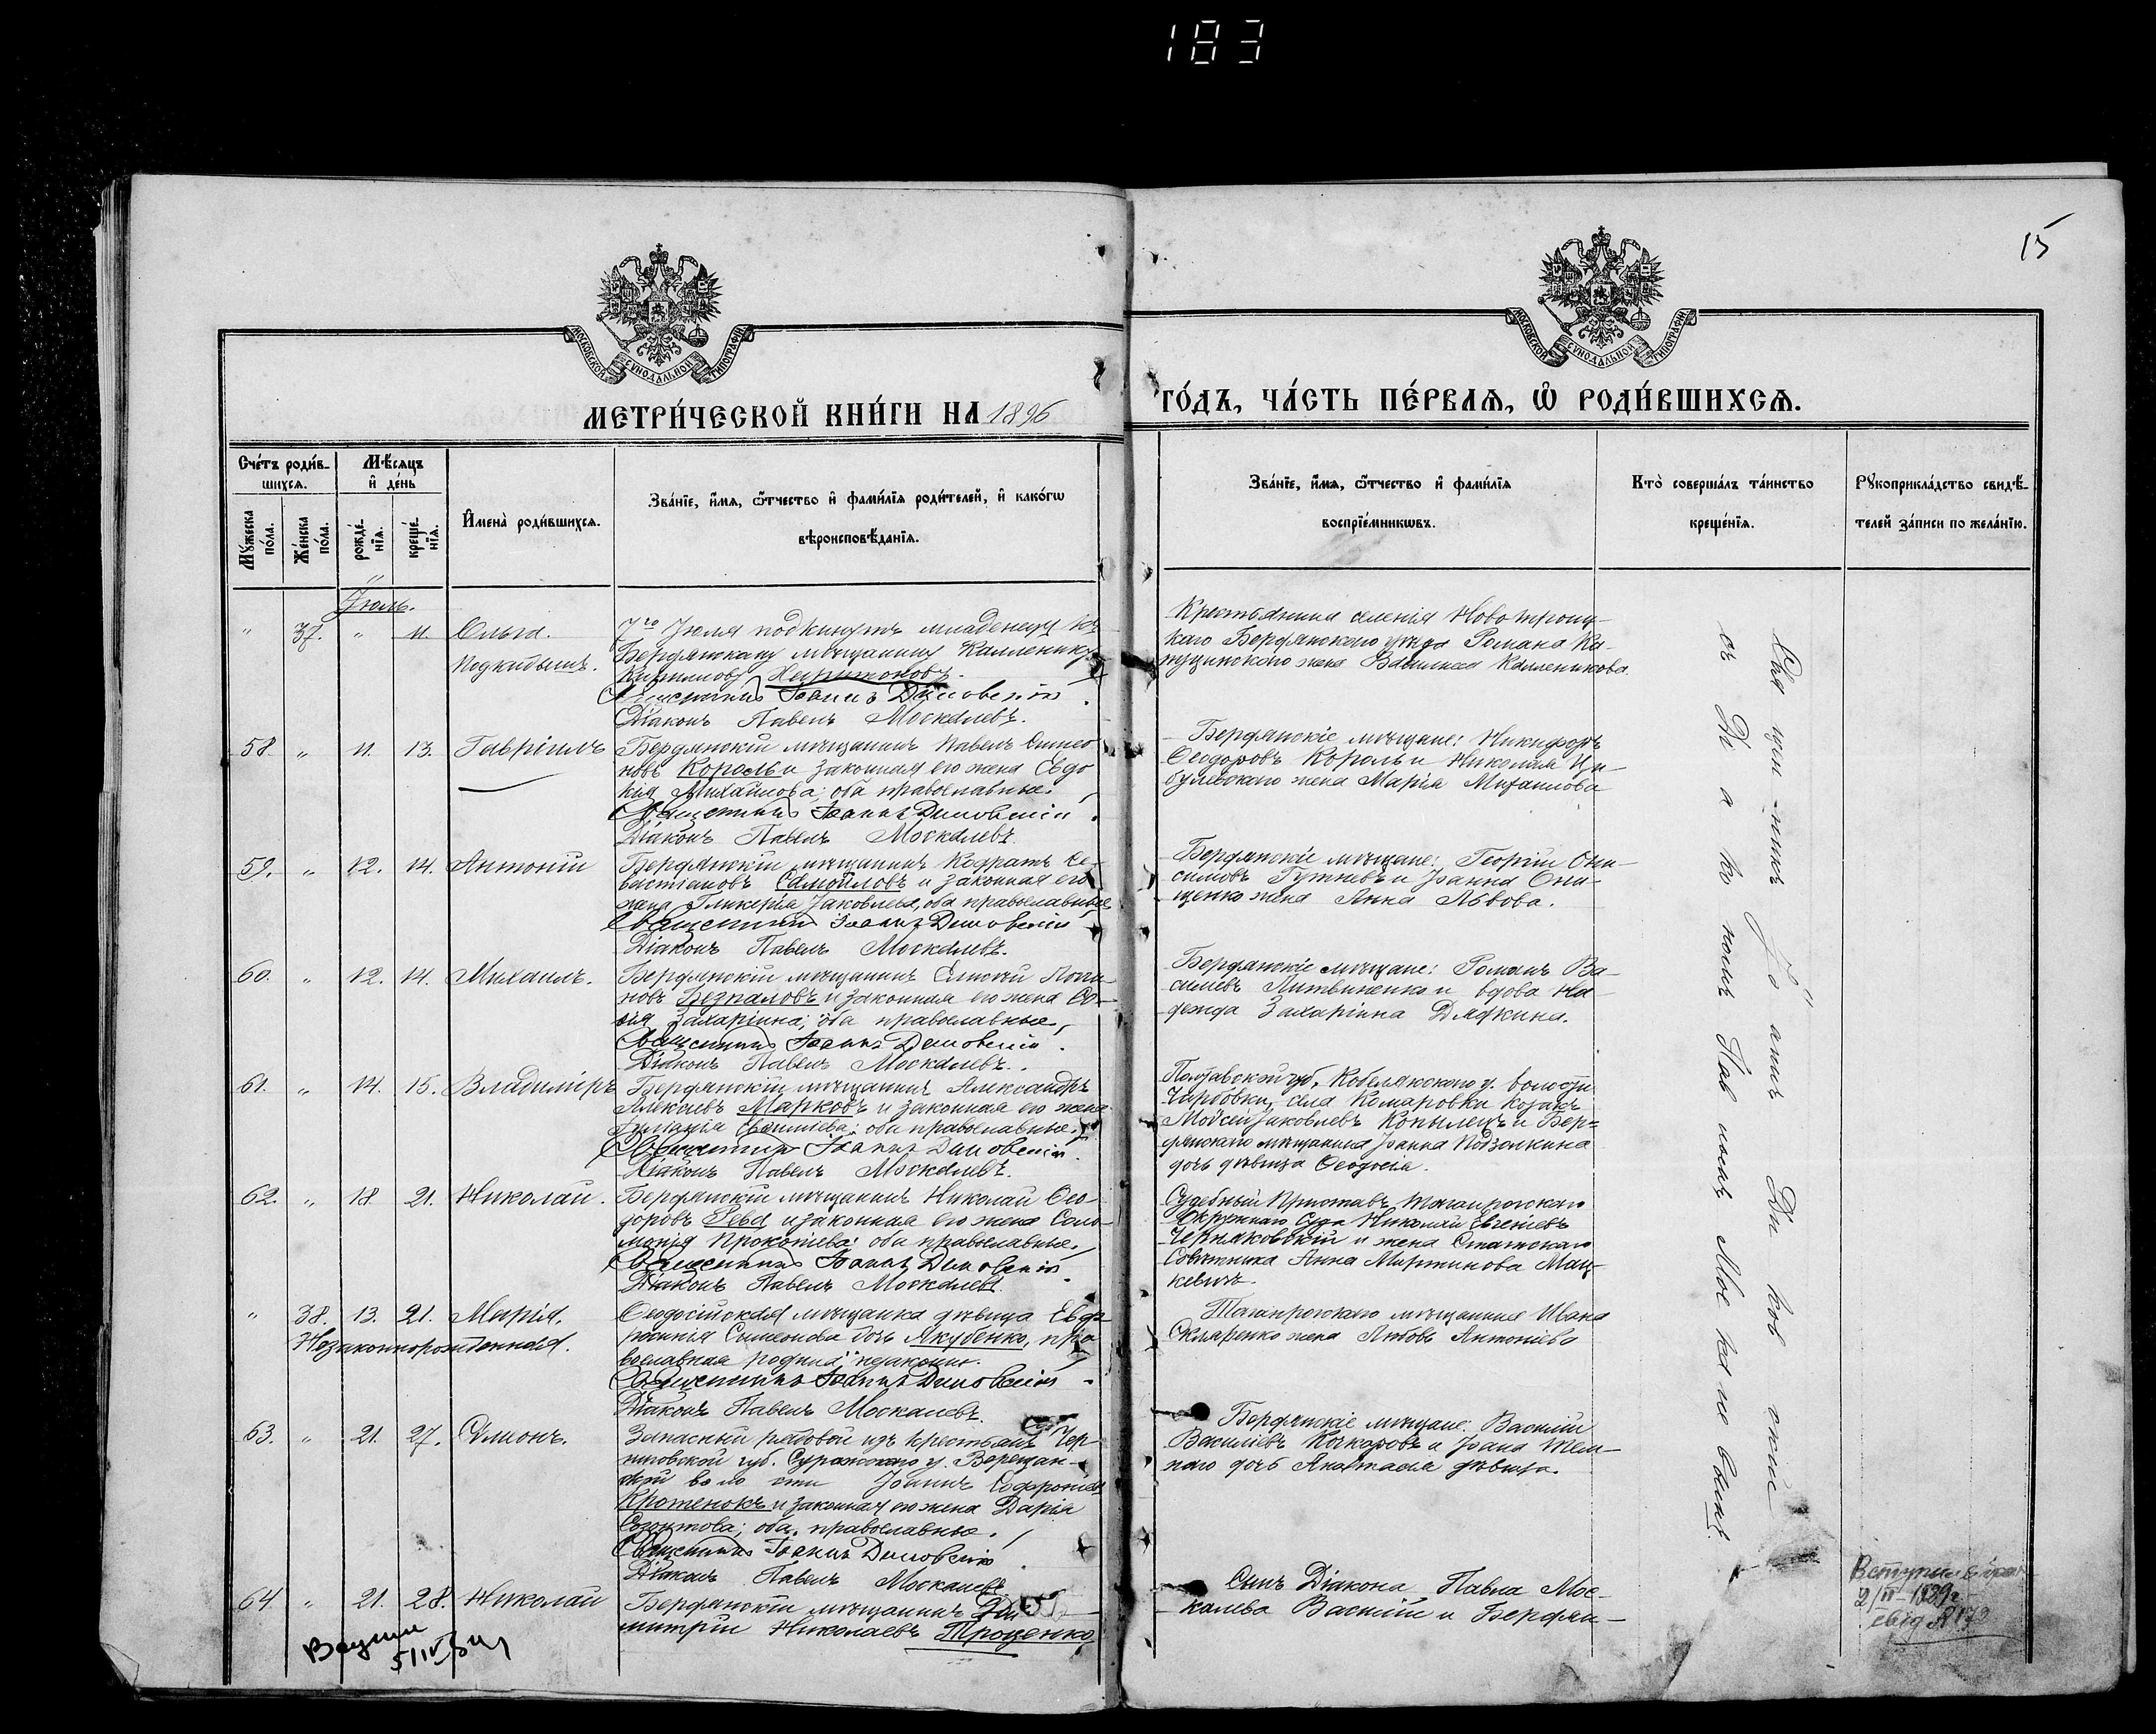 183
15
МОСКОВСКОЙ СѴНОДАЛЬНОЙ ТИПОГРАФІИ
МОСКОВСКОЙ СѴНОДАЛЬНОЙ ТИПОГРАФІИ
МЕТРИ́ЧЕСКОЙ КНИ́ГИ НА 1896
ГО́ДЪ, ЧА́СТЬ ПЕ́РВАѦ, Ѡ҆ РОДИ́ВШИХСѦ.
Сче́тъ роди́в-
шихсѧ.
Мѣ́сѧцъ
и҆ де́нь
Мꙋ́жеска
по́ла.
Же́нска
по́ла.
рожде́-
нїѧ.
креще́-
нїѧ.
И҆мена̀ роди́вшихсѧ.
Зва́нїе, и҆́мѧ, ѻ҆́тчество и҆ фами́лїѧ роди́телей, и҆ како́гѡ
вѣроисповѣ́данїѧ.
Зва́нїе, и҆́мѧ, ѻ҆́тчество и҆ фами́лїѧ
воспрїе́мникѡвъ.
Кто̀ соверша́лъ та́инство
креще́нїѧ.
Рꙋкоприкла́дство свидѣ́-
телей за́писи по жела́нїю.
Іюль.
" 37. " 11. Ольга.
Подкидышъ.
7го Іюля подкинутъ младенецъ къ
Бердянскому мѣщанину Каллинику
Священникъ Іоаннъ Димовскій.
Діаконъ Павелъ Москалевъ.
Крестьянина селенія Новотроиц-
каго Бердянскаго уѣзда Романа
жена Василиса Каллиникова.
58. " 11. 13. Гавріилъ
Бердянскій мѣщанинъ Павелъ Симео
новъ Король и законная его жена Евдо
кия Михайлова; оба православные.
Священникъ Іоаннъ Димовскій.
Діаконъ Павелъ Москалевъ.
Бердянскіе мѣщане: Никифоръ
Ѳеодоровъ Король и Николая Ци-
булевскаго жена Марія Михайлова
59. " 12. 14. Антоній
Бердянскій мѣщанинъ Кодратъ Се-
вастіановъ Самойловъ и законная его
жена Гликерія Іаковлева, оба православные
Священникъ Іоаннъ Димовскій
Діаконъ Павелъ Москалевъ.
Бердянскіе мѣщане: Георгій Они-
симовъ и Іоанна Они-
щенко жена Анна Львова.
60. " 12. 14. Михаилъ.
Бердянскій мѣщанинъ Елисей Логи-
новъ Безпаловъ и законная его жена Со-
фія Захаріина; оба православные,
Священникъ Іоаннъ Димовскій.
Діаконъ Павелъ Москалевъ.
Бердянскіе мѣщане: Романъ Ва-
силіевъ Литвиненко и вдова На-
дежда Захаріина Дядкина.
61. " 14. 15. Владиміръ
Бердянскій мѣщанинъ Александръ
Алексѣевъ Марковъ и законная его жена
оба православные.
Священникъ Іоаннъ Димовскій.
Діаконъ Павелъ Москалевъ.
Полтавской губ. Кобелякскаго у. волости
села Комаровки козакъ
Мойсей Іаковлевъ Копылецъ и Бер-
дянскаго мѣщанина Іоанна
дочь дѣвица Ѳеодосія.
62. " 18 21. Николай.
Бердянскій мѣщанинъ Николай Ѳео-
доровъ Рева и законная его жена Соло-
монія Прокопіева; оба православные.
Священникъ Іоаннъ Димовскій
Діаконъ Павелъ Москалевъ.
Судебный Приставъ Таганрогскаго
Окружнаго Суда Николай Евгеніевъ
Черняковскій и жена Статскаго
Совѣтника Анна Мартинова Мац-
кевичъ.
" 38. 13. 21. Марія.
Незаконнорожденная.
Ѳеодосійская мѣщанка дѣвица Евф
росинія Симеонова дочь Якубенко, пра
вославная родила незаконно.
Священникъ Іоаннъ Димовскій
Діаконъ Павелъ Москалевъ.
Таганрогскаго мѣщанина Ивана
Скляренко жена Любовь Антоніева
63. " 21. 27. Симонъ.
Запасный рядовой изъ крестьянъ Чер
ниговской губ. Суражскаго у.
волости Іоаннъ Софроніевъ
Кротенокъ и законная его жена Дарія
оба православные.
Священникъ Іоаннъ Димовскій
Діаконъ Павелъ Москалевъ
Бердянскіе мѣщане: Василій
Василіевъ и Іоанна
дочь Анастасія дѣвица.
64 " 21. 28. Николай
Бердянскій мѣщанинъ Ди-
митрій Николаевъ Троценко
Сынъ Діакона Павла Мос-
калева Василій и Бердян-
Священникъ Іоаннъ Димовскій
съ Діакономъ Павломъ Москалевымъ